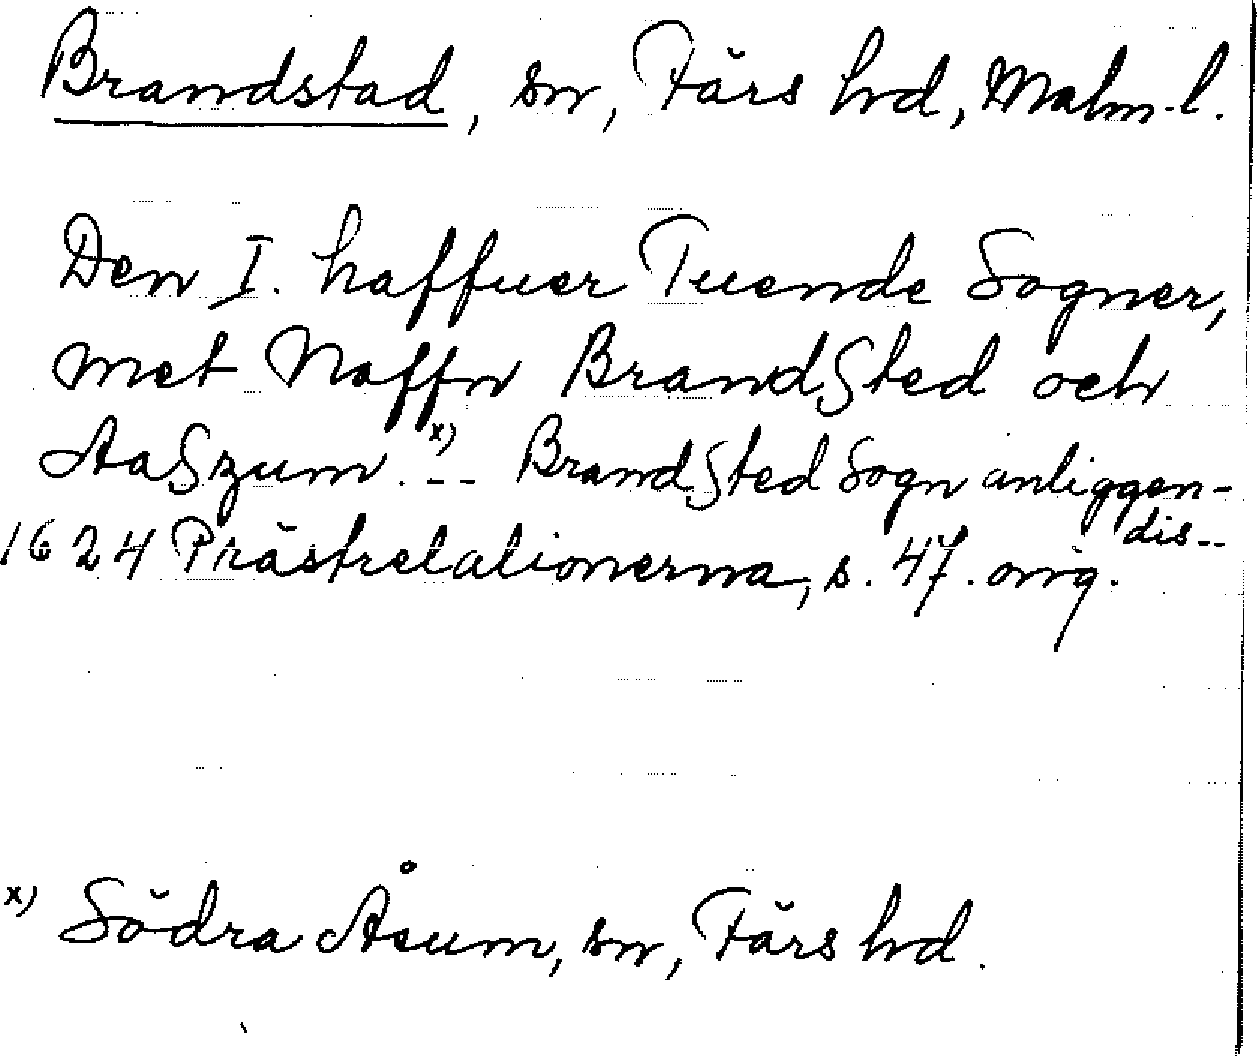 Brandstad, sn, Färs hd, Malm.l.
Den I. haffuer Tuende Sogner,
met Naffn BrandSted och
AaSzum.x) -- BrandSted Sogn anliggen-
dis--
1624 Prästrelationerna, s. 47. orig.
x) Södra Åsum, sn, Färs hd.